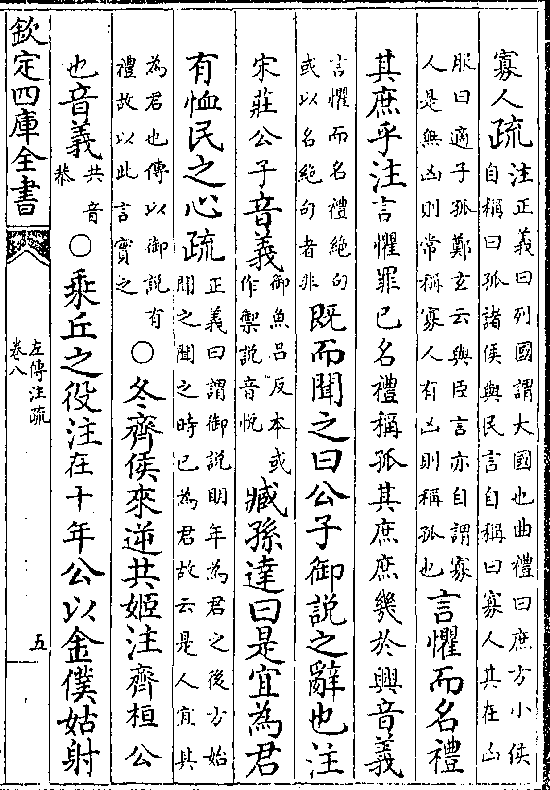 寡人疏注正義曰列國謂大國也曲禮曰庶方小侯
自稱曰孤諸侯與民言自稱曰寡人其在凶
服曰適子孤鄭玄云與臣言亦自謂寡
人是無凶則常稱寡人有凶則稱孤也言懼而名禮
其庶乎注言懼罪已名禮稱孤其庶庶幾於興音義
言懼而名禮絶句
或以名絶句者非既而聞之曰公子御說之辭也注
宋莊公子音義御魚呂反本或
作禦說音悅臧孫達曰是宜為君
有恤民之心疏正義曰謂御說明年為君之後方始
聞之聞之時已為君故云是人宜其
為君也傳以御說有
禮故以此言實之○冬齊侯來逆共姬注齊桓公
也音義共音
恭○乘丘之役注在十年公以金僕姑射
欽定四庫全書
左傳注疏
卷八
五